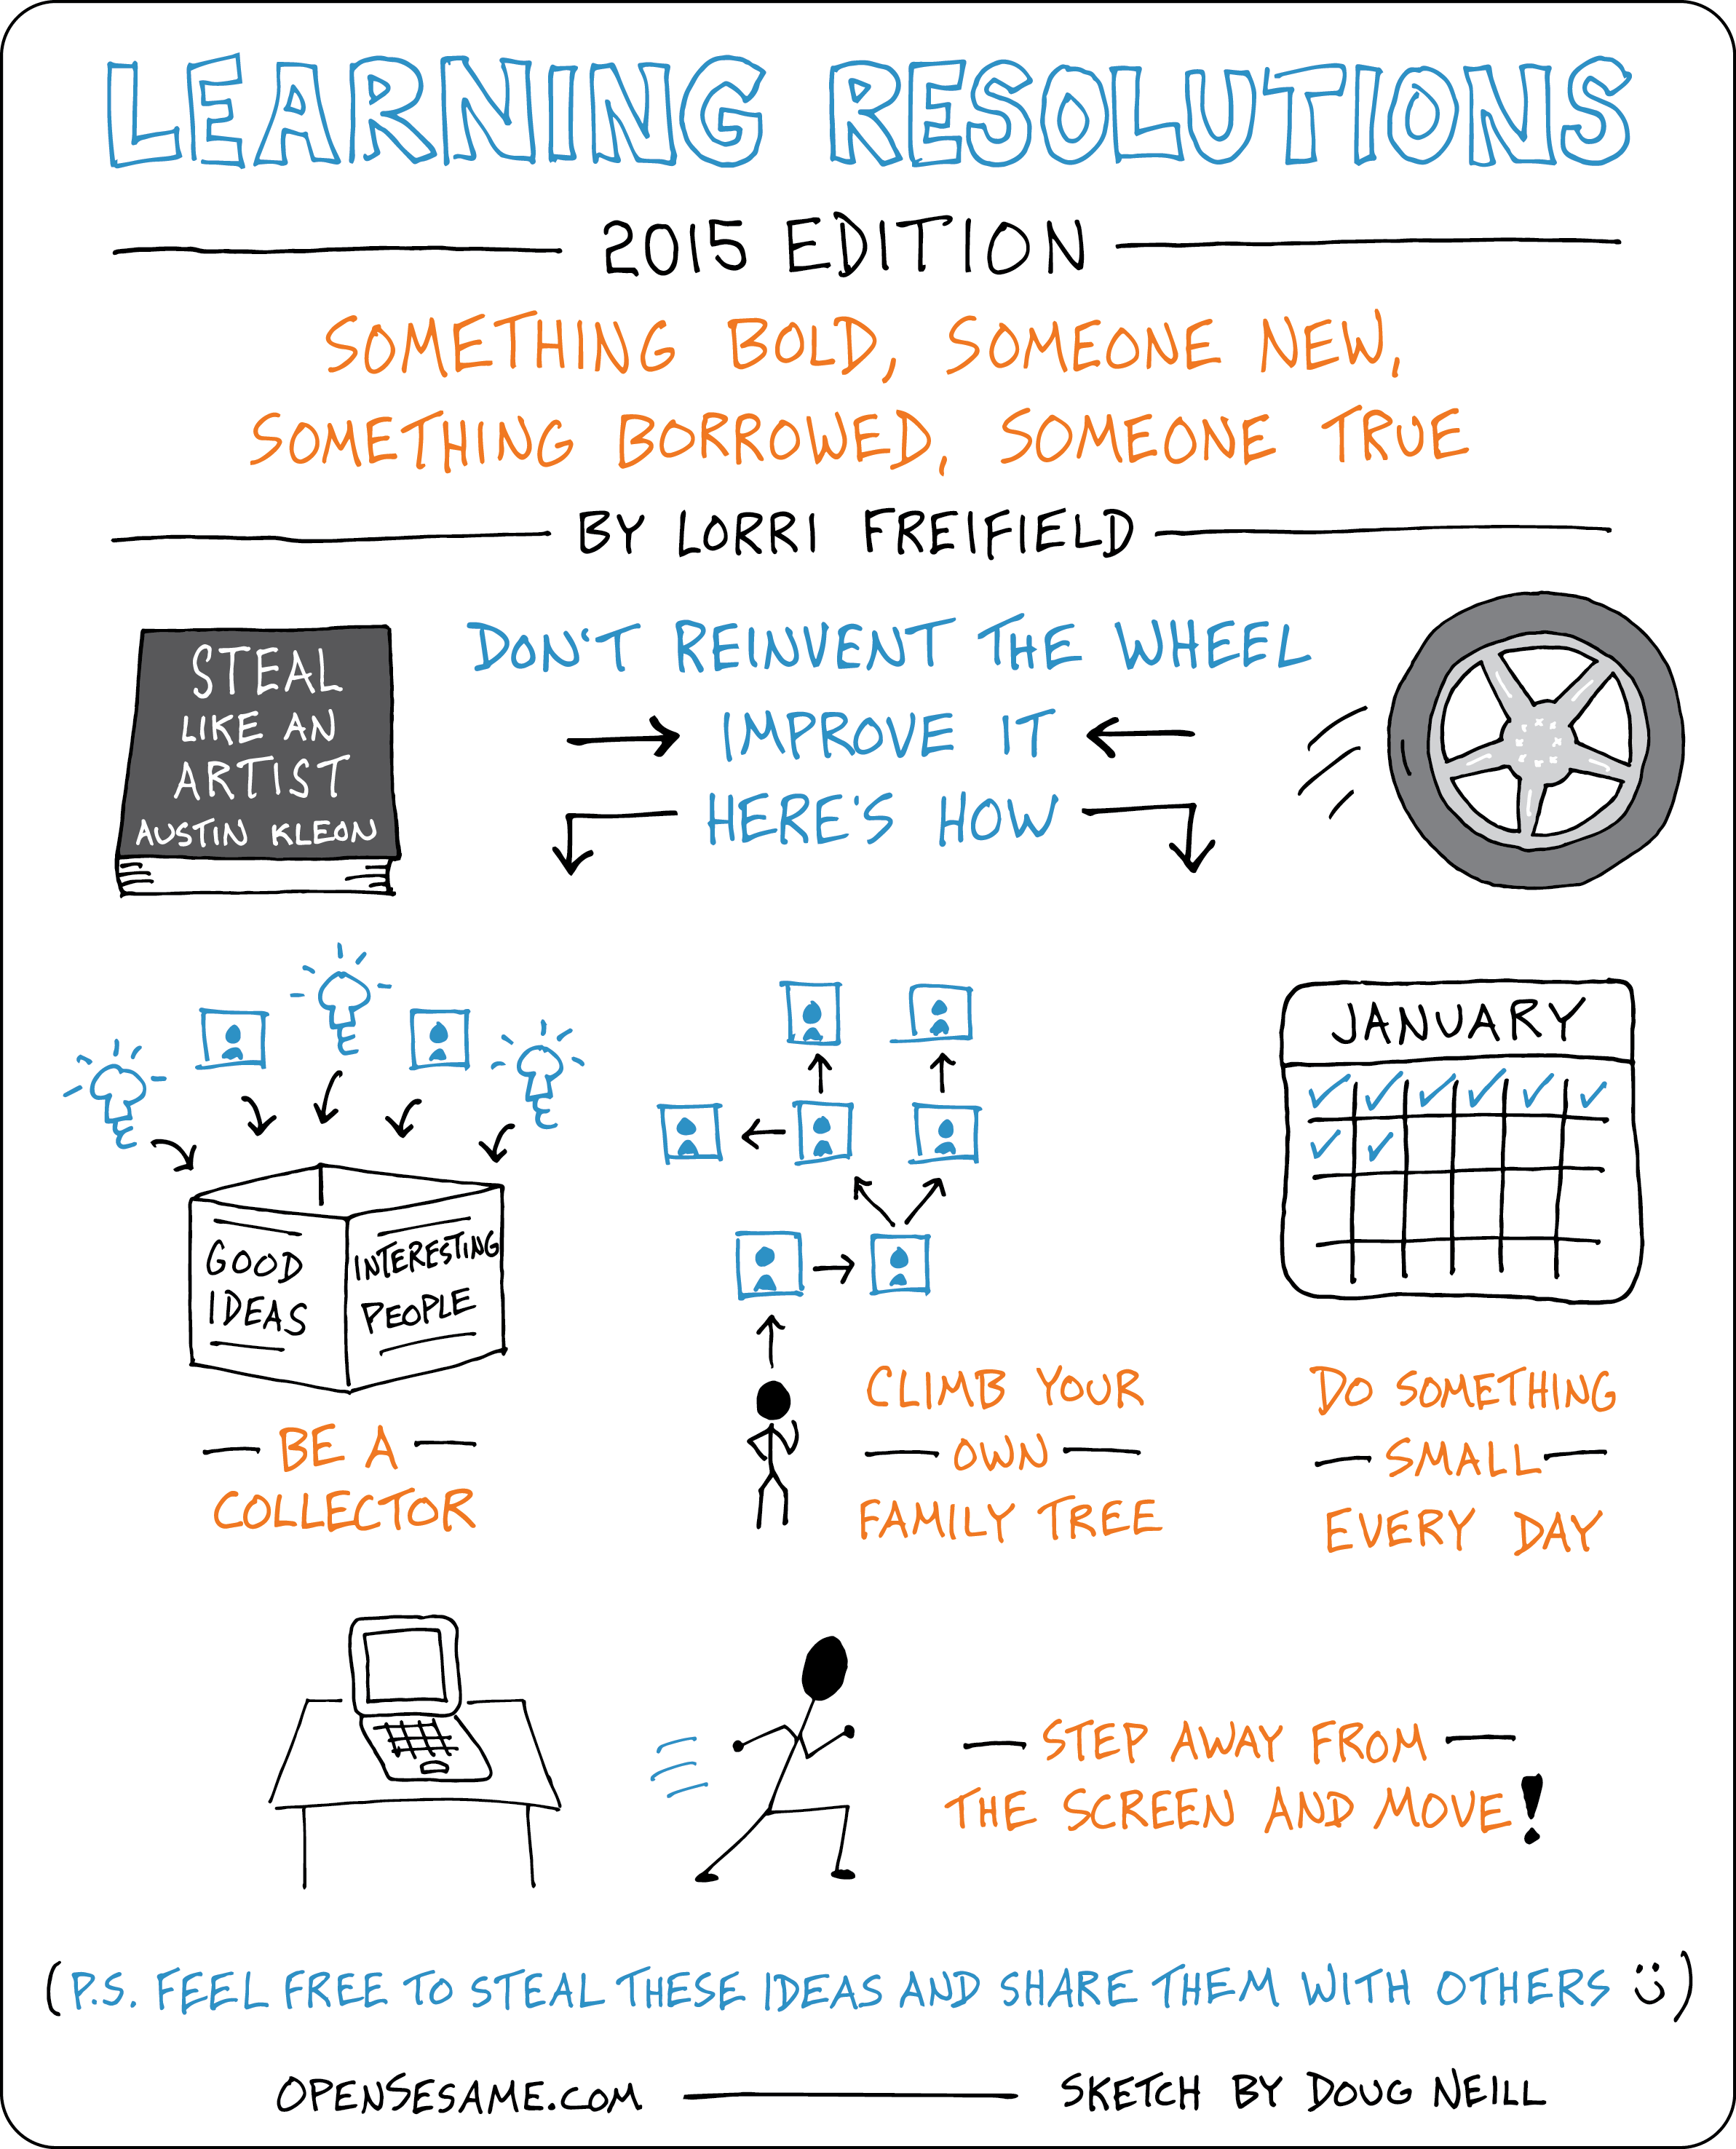 LEARNING RESOLUTIONS
2015 EDITION
SOMETHING BOLD, SOMEONE NEW,
SOMETHING BORROWED, SOMEONE TRUE
BY LORRI FREIFIELD
STEAL
LIKE AN
ARTIST
AUSTIN KLEON
DON'T REINVENT THE WHEEL
IMPROVE IT
HERE'S HOW
GOOD
IDEAS
INTERESTING
PEOPLE
BE A
COLLECTOR
CLIMB YOUR
OWN
FAMILY TREE
JANUARY
DO SOMETHING
SMALL
EVERY DAY
STEP AWAY FROM
THE SCREEN AND MOVE!
(P.S. FEEL FREE TO STEAL THESE IDEAS AND SHARE THEM WITH OTHERS :))
OPENSESAME.COM
SKETCH BY DOUG NEILL